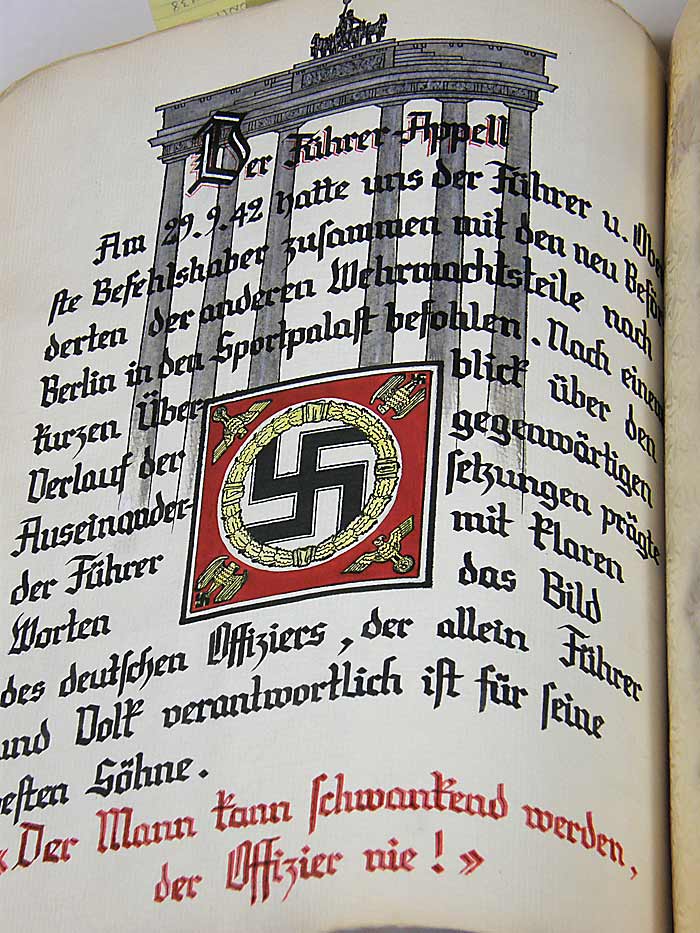 Der Führer-Appell
Am 29.9.42 hatte uns der Führer u. Obe
ste Befehlshaber zusammen mit den neu Beför
derten der anderen Wehrmachtsteile nach
Berlin in den Sportpalast befohlen. Nach einem
kurzen Über blick über den
Verlauf der gegenwärtigen
Auseinander- setzungen prägte
der Führer mit klaren
Worten das Bild
des deutschen Offiziers, der allein Führer
und Volk verantwortlich ist für seine
esten Söhne.
«Der Mann kann schwankend werden,
der Offizier nie!»